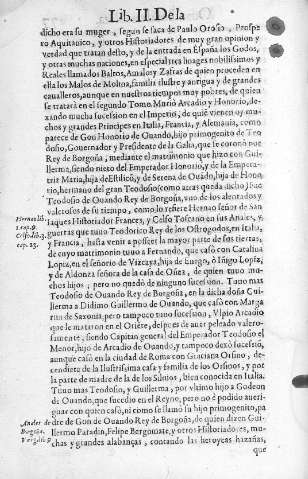 Lib. II. De la
dicho era su muger, segun se saca de Paulo Orosio, Prospero
Aquitanico, y otros Historiadores de muy gran opinion y
verdad que tratan desto, y de la entrada en España los Godos,
y otras muchas naciones, en especial tres linages nobilissimos y
Reales llamados Baltos, Amalos y Zafras de quien proceden en
ella los Malos de Molina, familia ilustre y antigua y de grandes
caualleros, aunque en nuestros tiempos muy pobres, de quien
se tratarà en el segundo Tomo. Murio Arcadio y Honorio, dexando
mucha sucession en el Imperio, de quiẽ vienen oy muchos
y grandes Principes en Italia, Francia, y Alemania, como
parece de Gon Honorio de Ouando, hijo primogenito de Teodosio,
Gouernador y Presidente de la Galia, que le coronò por
Rey de Borgoña, mediante el matrimonio que hizo con Guillerma,
siendo nieto del Emperador Honorio, y de la Emperatriz
Maria, hija de Estilico, y de Serena de Ouado, hija de Honorio,
hermano del gran Teodosio; como atras queda dicho. Fue
Teodosio de Ouando Rey de Borgoña, vno de los alentados y
valerosos de su tiempo, como lo refiere Hernao señor de San
Iaques Historiador Frances, y Celso Toscano en sus Anales, y
guerras que tuuo Teodorico Rey de los Ostrogodos, en Italia,
y Francia, hasta venir a posseer la mayor parte de sus tierras,
de cuyo matrimonio tuuo a Fernando, que casò con Catalina
Lopez, en el señorio de Vizcaya, hija de Iñigo Lopez,
y de Aldonza señora de la casa de Osera, de quien tuuo muchos
hijos; pero no quedò de ninguno sucession. Tuuo mas
Teodosio de Ouando Rey de Borgoña, en la dicha doña Guillerma
a Didimo Guillermo de Ouando, que casò con Margarita
de Saxonia, pero tampoco tuuo sucession, Vlpio Arcadio
que le mataron en el Oriẽte, despues de auer peleado valerosamente,
siendo Capitan general del Emperador Teodosio el
Menor, hijo de Arcadio de Ouando, y tampoco dexò sucessiõ,
aunque casò en la ciudad de Roma con Graciana Orsino, decendiente
de la Ilustrissima casa y familia de los Orsinos, y por
la parte de madre de la de los Sauios, bien conocida en Italia.
Tuuo mas Teodosio, y Guillerma, por vltimo hijo a Godeon
de Ouando, que sucedio en el Reyno, pero no è podido aueriguar
con quien casò, ni como se llamò su hijo primogenito, padre
de Gon de Ouando Rey de Borgoña, de quien dizen Guillermo
Paradin, Felipe Bergomate, y otros Historiadores, muchas
y grandes alabanças, contando las heroycas hazañas,
que